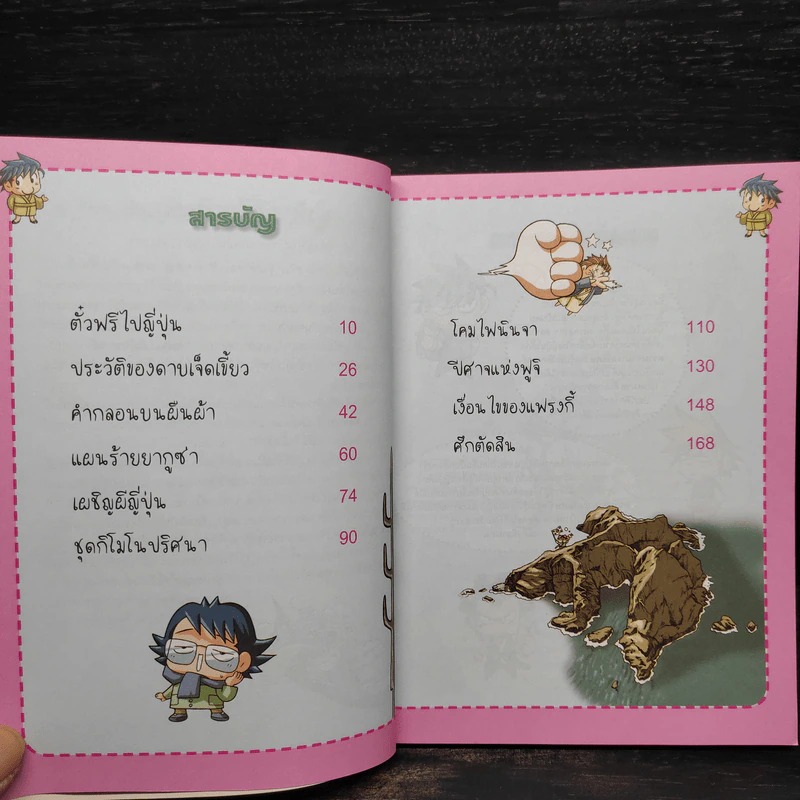 สารบัญ
ตั๋วฟรีไปญี่ปุ่น 10
ประวัติของดาบเจ็ดเขี้ยว 26
คำกลอนบนผืนผ้า 42
แผนร้ายยากูซา 60
เผชิญผีญี่ปุ่น 74
ชุดกิโมโนปริศนา 90
โคมไฟนินจา 110
ปีศาจแห่งฟูจิ 130
เงื่อนไขของแฟรงกี้ 148
ศึกตัดสิน 168